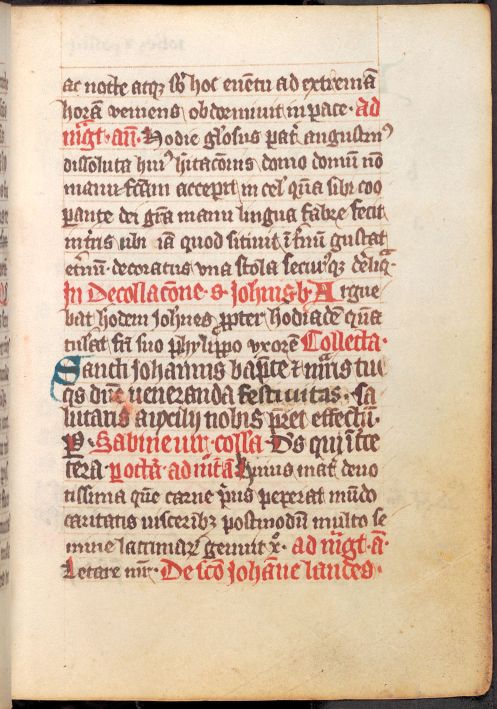 ac nocte atq; sb hoc euentu ad extremā
horā veniens obdormiuit in pace · ad
mgt · an̄ · Hodie glosus pat̄ augustin⁹
dissoluta hui⁹ hitacōnis domo domū nō
manu fcām accepit in cel' quā sibi coo
pante dei grā manu lingua fabre fecit
in tris ubi iā quod sitiuit īt̄nū gustat
et̄nū · decoratus vna stola secur⁹q; de reliq
In Decollacōne · s · Johnīs b · Argue
bat hodem Johnes ppter hodiadē quā
tulat frī suo phylippo vxorē Collecta ·
Sancti Johannis bapte ⁊ mris tui
qs dn̄e ueneranda festiuitas · sa
lutaris auxilij nobis pret effectū ·
P̄ · Sabine uir · coll'a · Ds qui īt̄ ce
tera · p octā · ad mt̄ā Huius mat̄ deuo
tissima que carne p̄us pepererat mūdo
caritatis visceribz postmodū multo se
mine lacrimaꝝ genuit x̄ · ad mgt · a ·
Letare mr̄ · De sco Johāne laudes ·